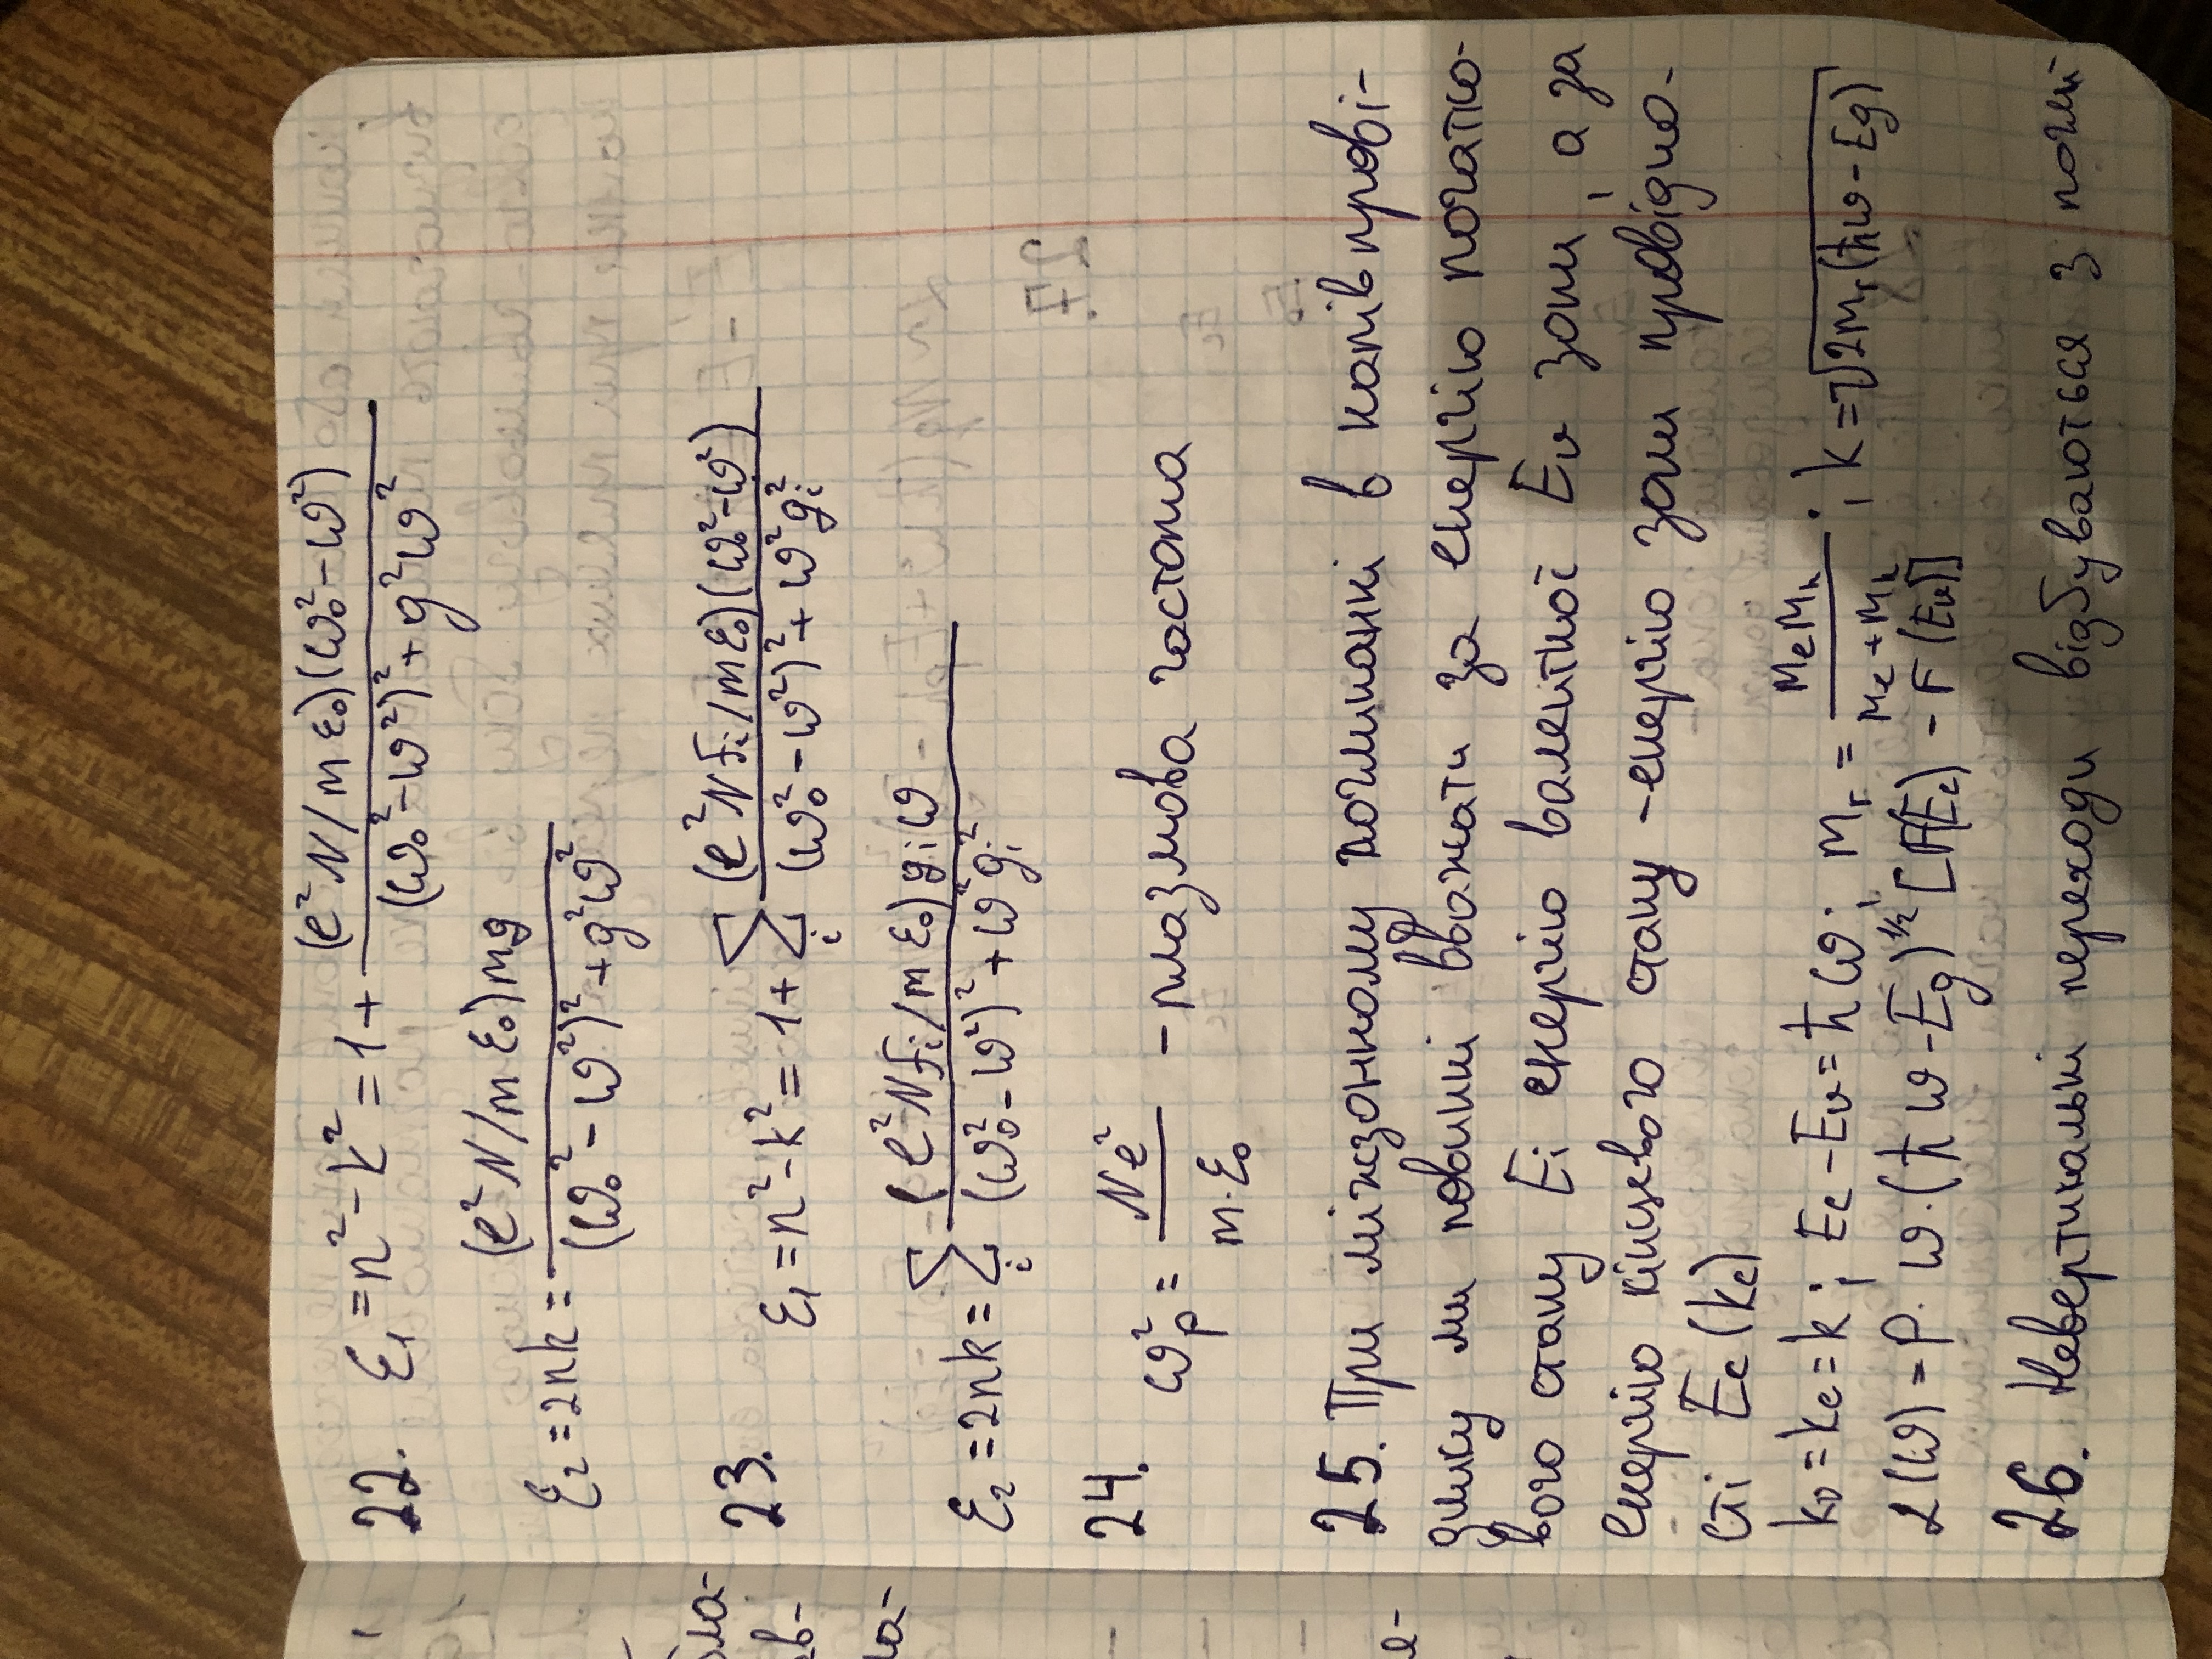 22. ε₁ = n² - k² = 1 + (e²N/mε₀)(ω₀² - ω²) / (ω₀² - ω²)² + g²ω²
ε₂ = 2nk = (e²N/mε₀)mg / (ω₀² - ω²)² + g²ω²
23. ε₁ = n² - k² = 1 + Σᵢ (e²NFᵢ/mε₀)(ω₀² - ω²) / (ω₀² - ω²)² + ω²gᵢ²
ε₂ = 2nk = Σᵢ (e²NFᵢ/mε₀)gᵢω / (ω₀² - ω²)² + ω²gᵢ²
24. ωp² = Ne² / m·ε₀ - плазмова частота
25. При міжзонному поглинанні в напівпрові-
днику ми повинні вважати за енергію початко-
вого стану Ei енергію валентної Ev зони, а за
енергію кінцевого стану - енергію зони провідно-
сті Ec(kc)
kv = kc = k; Ec - Ev = ħω; mr = memh / me + mh; k = √2mr(ħω - Eg)
α(ω) = P·ω·(ħω - Eg)^1/2 [F(Ec) - F(Ev)]
26. Невертикальні переходи відбуваються з погли